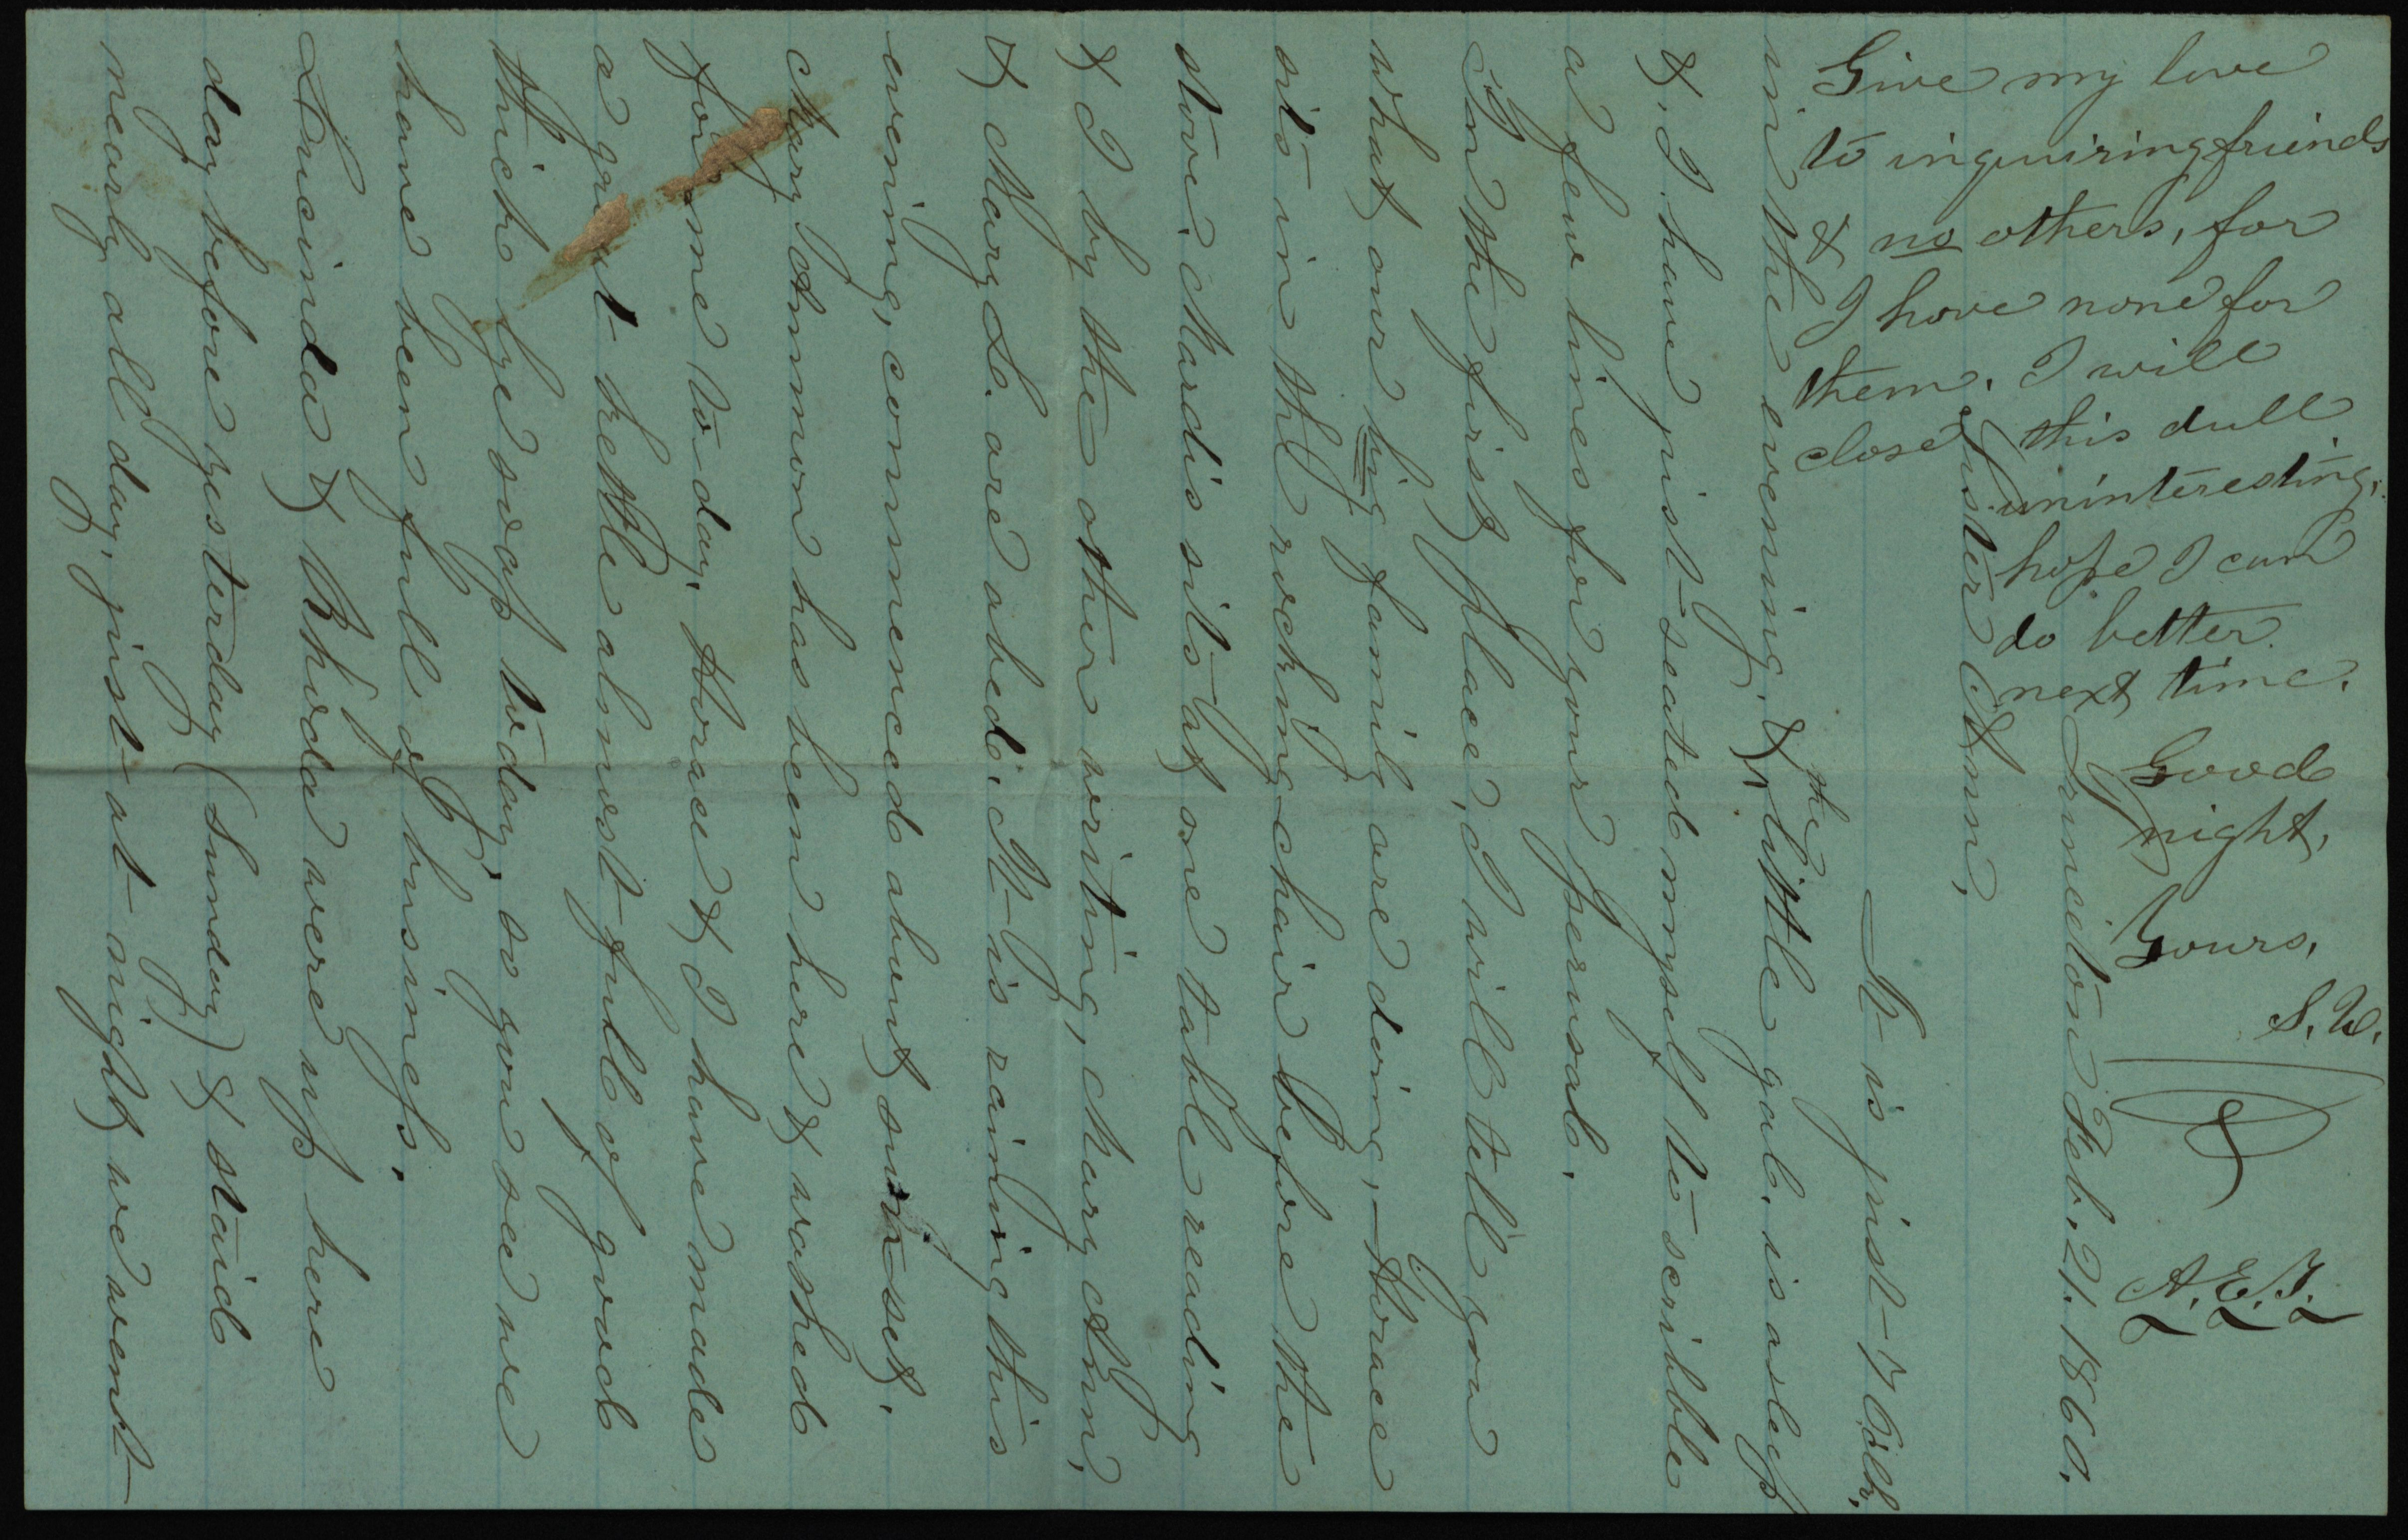 Princeton Feb. 21. 1860.
Sister Ann,
It is just 7 Oclk.
in the evening, & the little gal. is asleep
&, I have just seated myself to scribble
a few lines for your perusal.
In the first place, I will tell you
what our big family are doing,— Horace
sits in the rocking chair before the
stove. Mardis sits at one table reading
& I by the other writing, Mary Ann,
& Mary L. are abed. It is raining this
evening, commenced about sun set.
Mary Ammon has been here & washed
for me to-day. Horace & I have made
a great kettle almost full of good
thick lye soap to day, so you see we
have been full of business.
Lucinda & Rhoda were up here
day before yesterday (Sunday) & staid
nearly all day, just at night we went
Give my love
to inquiring friends
& no others, for
I have none for
them. I will
close this dull
uninteresting,
hope I can
do better
next time.
Good
night,
Yours,
S. W.
A. E. J.